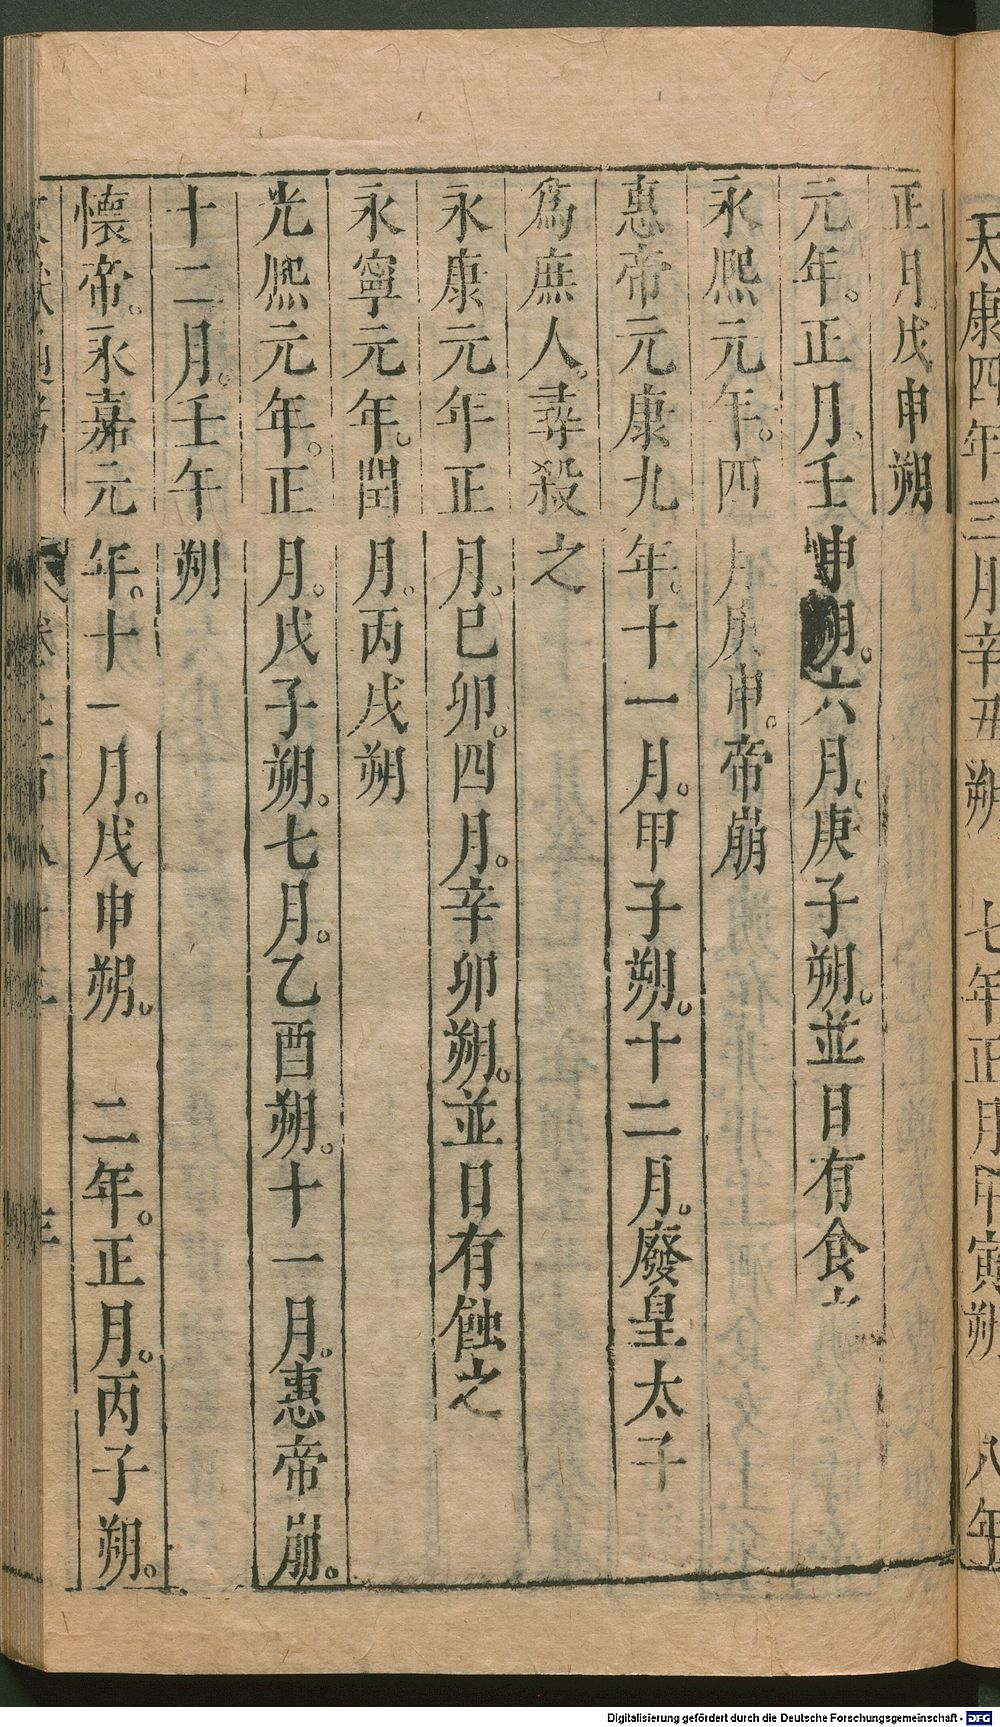 太康四年三月辛丑朔 七年正月甲寅朔 八年
正月。戊申朔
元年。正月。壬申朔。六月。庚子朔。並日有食
永熈元年。四月庚申。帝崩
惠帝元康九年。十一月。甲子朔。十二月。廢皇太子
爲庶人。尋殺之
永康元年正月。巳卯。四月。辛卯朔。並日有蝕之
永寧元年。閏月。丙戌朔
光熈元年。正月。戊子朔。七月。乙酉朔。十一月。惠帝崩。
十二月。壬午朔
懷帝。永嘉元年。十一月。戊申朔。 二年。正月。丙子朔。
Digitalisierung gefördert durch die Deutsche Forschungsgemeinschaft - DFG